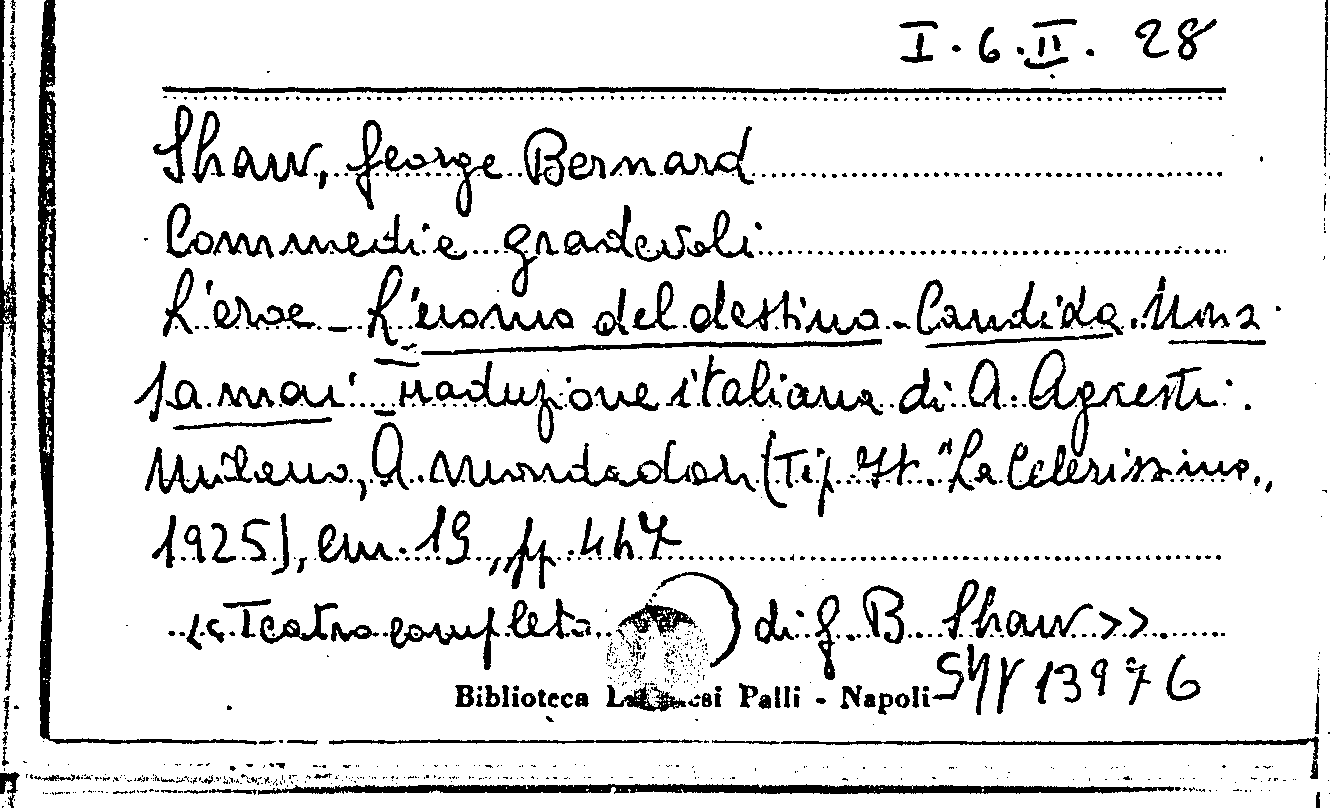 I. 6. II. 28
Shaw, George Bernard
Commedie gradevoli
L'eroe - L'uomo del destino - Candida. Non si
sa mai - Traduzione italiana di A. Agresti.
Milano, A. Mondadori (Tip. It. "La Celerissima",
1925), cm. 19, pp. 447
<<Teatro completo di G. B. Shaw>>.
Biblioteca Palli - Napoli 13976